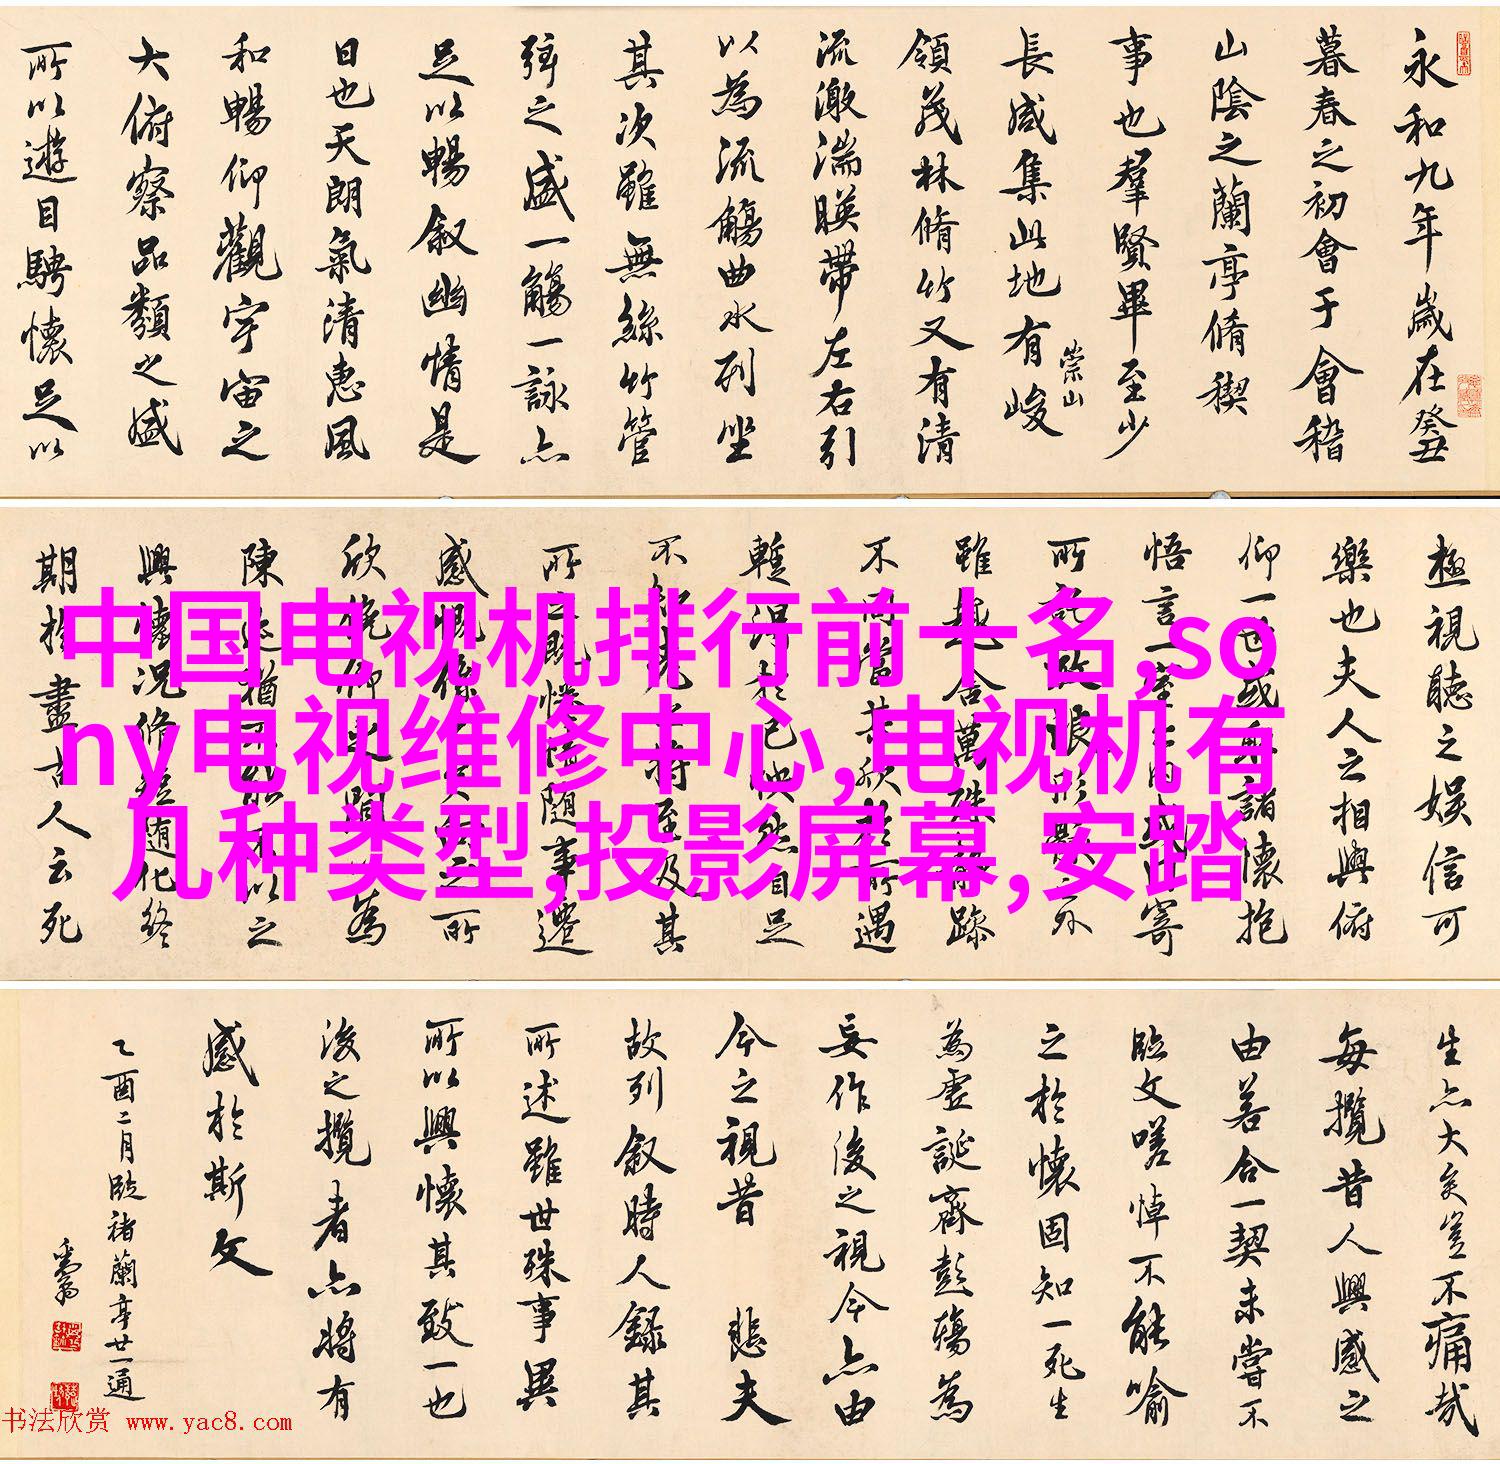 永和九年歲在癸丑
暮春之初會于會稽
山陰之蘭亭脩稧
事也羣賢畢至少
長咸集此地有崇山峻
領茂林脩竹又有清
流激湍暎帶左右引
以為流觴曲水列坐
其次雖無絲竹管
弦之盛一觴一詠亦
足以暢叙幽情是
日也天朗氣清惠風
和暢仰觀宇宙之
大俯察品類之盛
所以遊目騁懷足以
極視聽之娛信可
樂也夫人之相與俯
仰一世或取諸懷抱
悟言一室之內或因寄
所託放浪形骸之外
雖趣舍萬殊靜躁
不同當其欣於所遇
暫得於己怏然自足
不知老之將至及其
所之既惓情隨事遷
感慨係之矣向之所
欣俛仰之間以為
陳迹猶不能不以之
興懷況脩短隨化終
期於盡古人云死
生亦大矣豈不痛哉
每攬昔人興感之
由若合一契未嘗不
臨文嗟悼不能喻
之於懷固知一死生
為虛誕齊彭殤為
妄作後之視今亦由
今之視昔 悲夫
故列叙時人録其
所述雖世殊事異
所以興懷其致一也
後之攬者亦將有
感於斯文
乙酉二月臨褚蘭亭廿一通
中国电视机排行前十名,so
ny电视维修中心,电视机有
几种类型,投影屏幕,安踏
书法欣赏 www.yac8.com